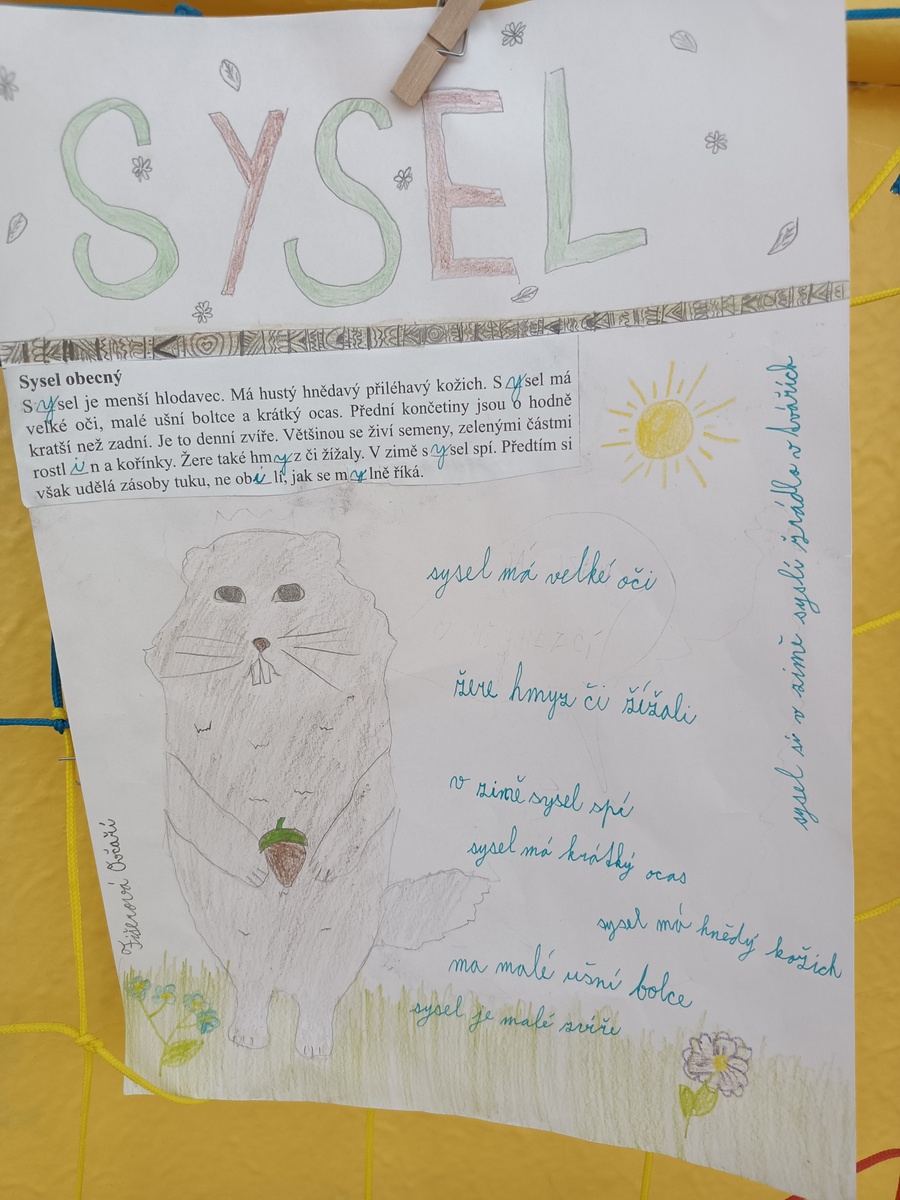 SYSEL
Sysel obecný
Sysel je menší hlodavec. Má hustý hnědavý přiléhavý kožich. Sysel má
velké oči, malé ušní boltce a krátký ocas. Přední končetiny jsou o hodně
kratší než zadní. Je to denní zvíře. Většinou se živí semeny, zelenými částmi
rostlin a kořínky. Žere také hmyz či žížaly. V zimě sysel spí. Předtím si
však udělá zásoby tuku, ne obilí, jak se mylně říká.
sysel má velké oči
žere hmyz či žížali
v zimě sysel spí
sysel má krátký ocas
sysel má hnědý kožich
ma malé ušní bolce
sysel je malé zvíře
sysel si v zimě syslí žrádlo v tvářích